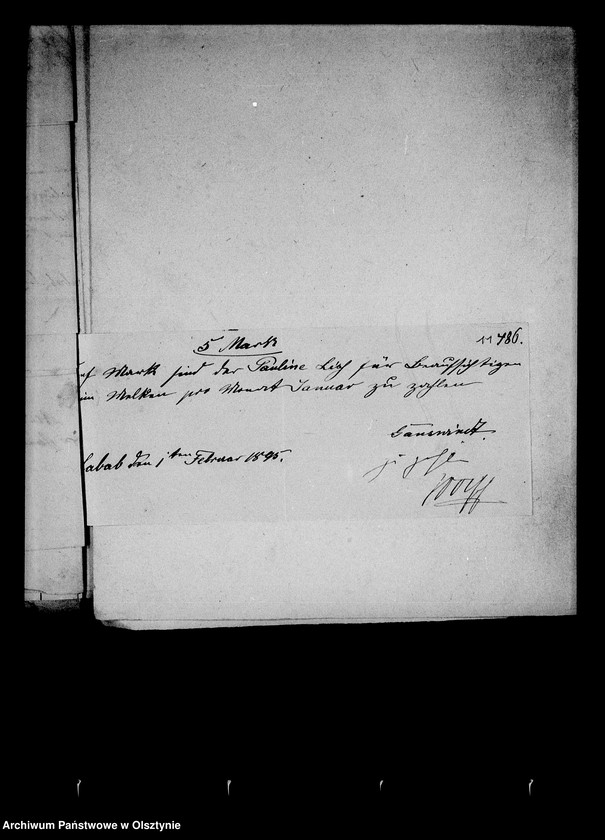 5 Mark
11 786.
Mark sind der Pauline für Beaufsichtigen
Melken pro Monat Januar zu zahlen
den 1ten Februar 1895.
Archiwum Państwowe w Olsztynie